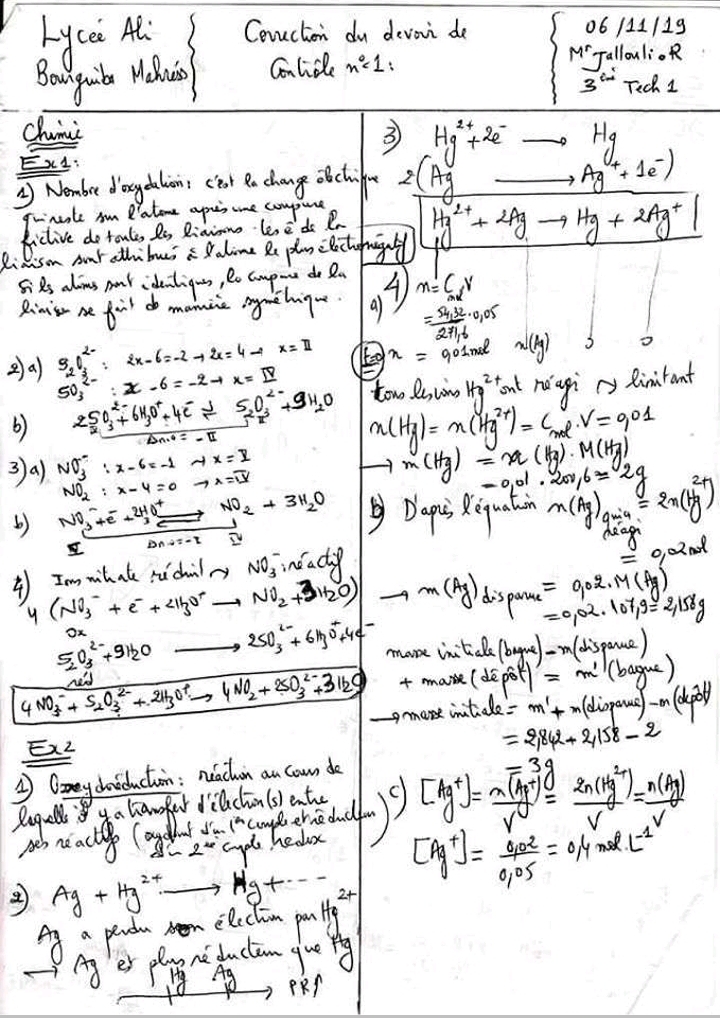 Lycée Ali
Bourguiba Mahrèss
Correction du devoir de
Contrôle n°1:
06/11/19
Mr Jallouli.R
3ème Tech 1
Chimie
Ex1:
1) Nombre d'oxydation: c'est la charge électrique
qui reste sur l'atome après une coupure
fictive de toutes les liaisons: les é de la
liaison sont attribués à l'atome le plus électronégatif
Si les atomes sont identiques, la coupure de la
liaison se fait de manière symétrique.
2) a) S2O3^2- : 2x-6=-2 → 2x=4 → x=II
SO3^2- : x-6=-2 → x=IV
b) 2SO3^2- + 6H3O+ + 4e- ⇌ S2O3^2- + 9H2O
Δn.o = -II
3) a) NO3^- : x-6=-1 → x=V
NO2 : x-4=0 → x=IV
b) NO3^- + e- + 2H3O+ ⇌ NO2 + 3H2O
V Δn.o=-I IV
4) Ions nitrate réduit ↝ NO3^- : réactif
4 (NO3^- + e- + 2H3O+ → NO2 + 3H2O)
Ox
S2O3^2- + 9H2O → 2SO3^2- + 6H3O+ + 4e-
red
4NO3^- + S2O3^2- + 2H3O+ → 4NO2 + 2SO3^2- + 3H2O
Ex2
1) Oxydoréduction: réaction au cours de
laquelle il y a transfert d'électron(s) entre
ses réactifs (oxydant d'un 1er couple et réducteur
d'un 2ème couple redox
2) Ag + Hg^2+ → Hg + ---
Ag a perdu son électron par Hg^2+
→ Ag est plus réducteur que Hg
Hg Ag
PR↑
3) Hg^2+ + 2e- → Hg
2(Ag → Ag+ + 1e-)
Hg^2+ + 2Ag → Hg + 2Ag+
4) n = Cmol.V
a) = 54,32/271,6 . 0,05
t=0 n = 0,01mol n(Ag) 0 0
tous les ions Hg^2+ ont réagi ↝ limitant
n(Hg) = n(Hg^2+) = Cmol.V = 0,01
→ m(Hg) = n(Hg).M(Hg)
= 0,01 . 200,6 = 2g
b) D'après l'équation n(Ag) qui a réagi = 2n(Hg^2+)
= 0,02mol
→ m(Ag) disparue = 0,02.M(Ag)
= 0,02.107,9 = 2,158g
masse initiale (bague) - m(disparue)
+ masse (dépôt) = m'(bague)
→ masse initiale = m' + m(disparue) - m(dépôt)
= 2,842 + 2,158 - 2
= 3g
c) [Ag+] = n(Ag+)/V = 2n(Hg^2+)/V = n(Ag)/V
[Ag+] = 0,02/0,05 = 0,4 mol.L^-1